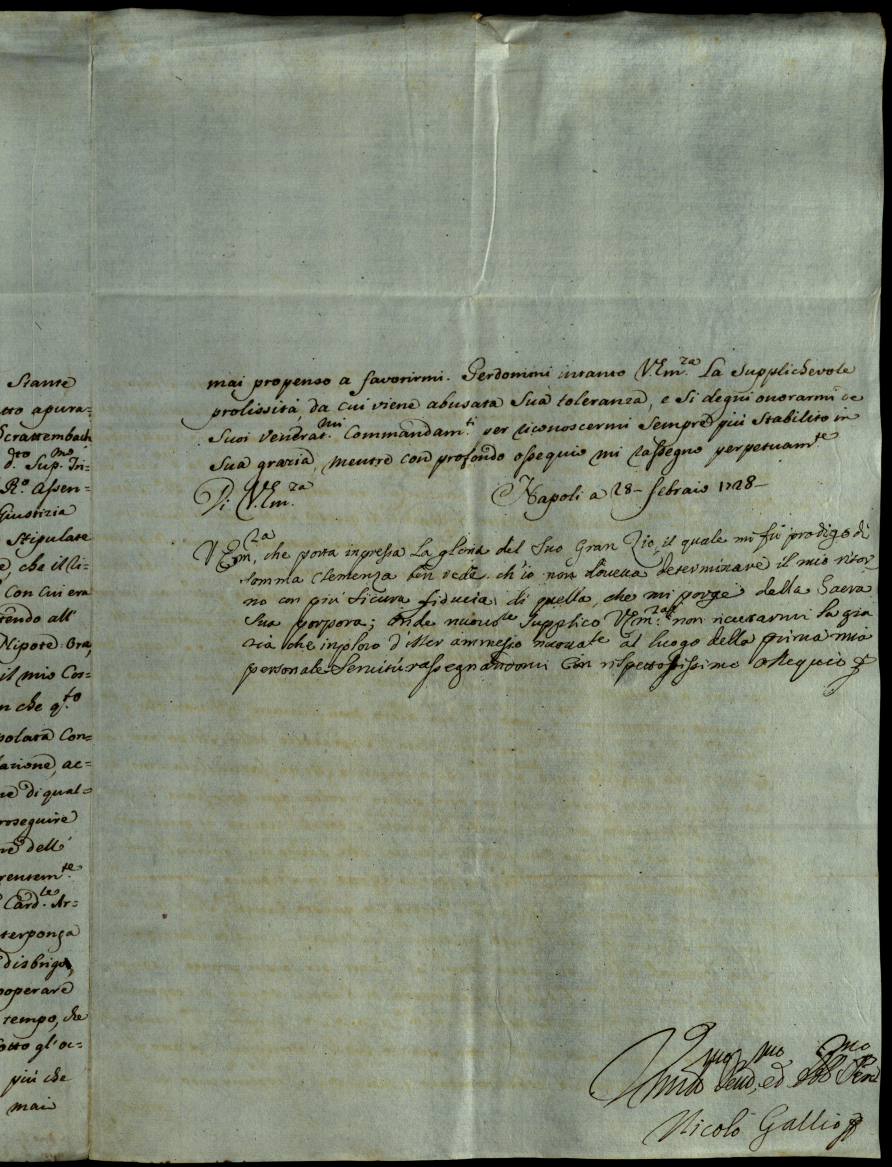 Stante
tto apura=
Scrattembach
d.to Sup.mo Tri=
R.o Assen=
Giustizia
Stipulate
e che il Ci=
Con cui era
tendo all'
Nipote. Ora,
il mio Cos=
n che q.to
polata Con=
lazione, ac=
ne di qual=
roseguire
ne dell'
rentem.te
Card.le Ar=
terponga
disbrigo,
ooperare
tempo, che
otto gl'oc=
più che
mai
mai propenso a favorirmi. Perdonimi intanto V.Em.za La supplichevole
prolissità, da cui viene abusata Sua toleranza, e si degni onorarmi de
Suoi Venerat.mi Commandam.ti per riconoscermi sempre più Stabilito in
Sua grazia, mentre con profondo ossequio mi rassegno perpetuam.te
Di V.Em.za Napoli a 28 febraio 1728
V.Em.za, che porta impressa La gloria del Suo Gran Zio, il quale mi fù prodigo di
somma Clemenza ben vede, ch'io non doveva determinare il mio ritor
no con più sicura fiducia, di quella, che mi porge della Sacra
Sua porpora; Onde Supplico V.Em.za à non ricusarmi la gra
zia che imploro d'esser ammesso al luogo della prima mia
personale Servitù rassegnandomi con rispettosissimo ossequio
Nicolò Gallio